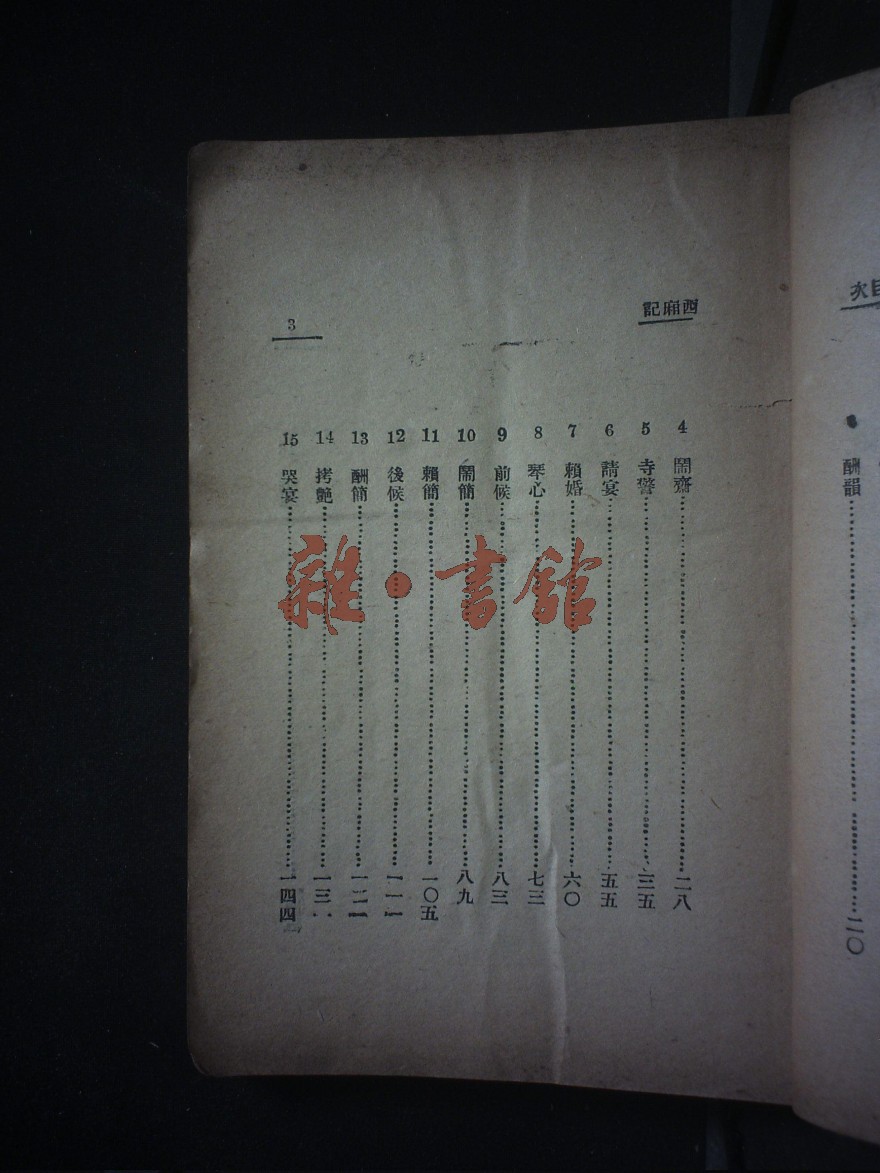 目次
酬韻……二〇
西廂記
3
4 鬧齋……二八
5 寺警……三五
6 請宴……五五
7 賴婚……六〇
8 琴心……七三
9 前候……八三
10 鬧簡……八九
11 賴簡……一〇五
12 後候……一一一
13 酬簡……一二一
14 拷艷……
15 哭宴……一四四
雜·書館